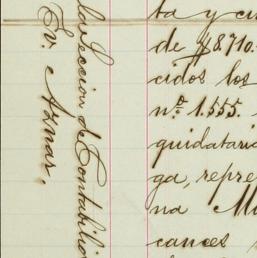 la Sección de Contabili
Ev. e Aznar.
ta y ci
de $8.710.
cidos los
nº 1.555.
quidatari
ga, repre
na M
cances